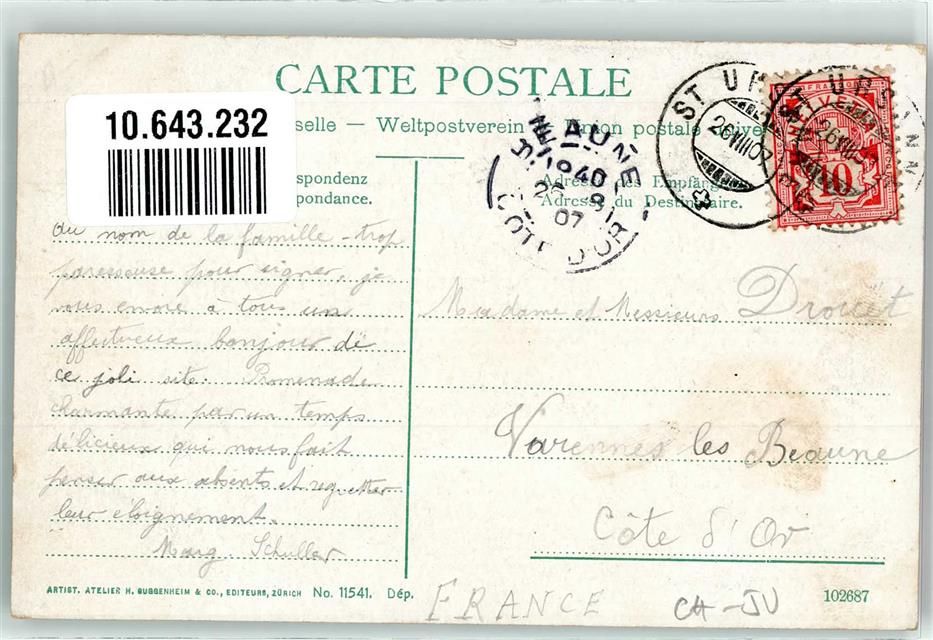 CARTE POSTALE
10.643.232
selle — Weltpostverein — Union postale univer
spondenz
pondance.
Adresse des Empfäng
Adresse du Destinataire.
BEAUNE
CÔTE D'OR
07
ST URS
26 VIII 07
10
au nom de la famille - trop
paresseuse pour signer, je
vous envoie à tous un
affectueux bonjour de
ce joli site. Promenade
charmante par un temps
délicieux qui nous fait
penser aux absents et regretter
leur éloignement.
Marg. Schuller
Madame et Messieurs Drouet
Varennes les Beaune
Côte d'Or
FRANCE
CH-JU
ARTIST. ATELIER H. GUGGENHEIM & CO., EDITEURS, ZÜRICH No. 11541. Dép.
102687